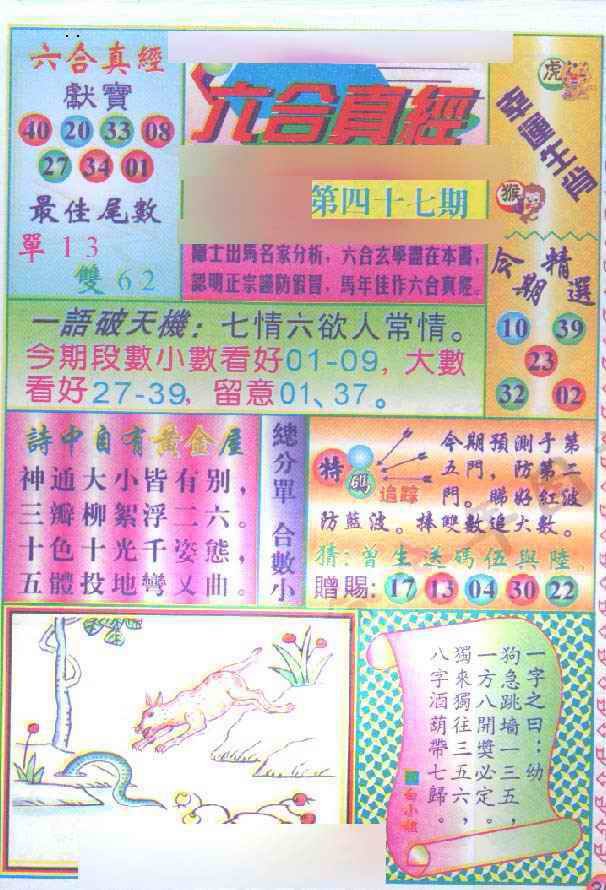 六合真經
獻寶
40 20 33 08
27 34 01
最佳尾數
單 1 3
雙 6 2
六合真經
第四十七期
隱士出馬名家分析，六合玄學盡在本書，
認明正宗謹防假冒，馬年佳作六合真經。
虎
幸運生肖
猴
今期精選
10 39
23
32 02
一語破天機：七情六欲人常情。
今期段數小數看好01-09，大數
看好27-39，留意01、37。
詩中自有黃金屋
神通大小皆有别，
三瓣柳絮浮二六。
十色十光千姿態，
五體投地彎又曲。
總分單
合數小
特碼
追踪
今期預測于第
五門，防第二
門。睇好紅波
防藍波。捧雙數追大數。
猜：曾生送碼伍與陸
贈賜：17 13 04 30 22
一字之曰：幼
狗急跳墙一三五，
一方八開獎必定。
獨來獨往三五六，
八字酒葫帶七歸。
白小姐